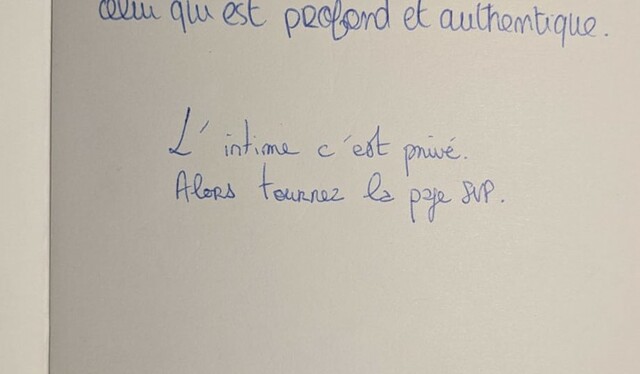 celui qui est profond et authentique.
L'intime c'est privé.
Alors tournez la page SVP.